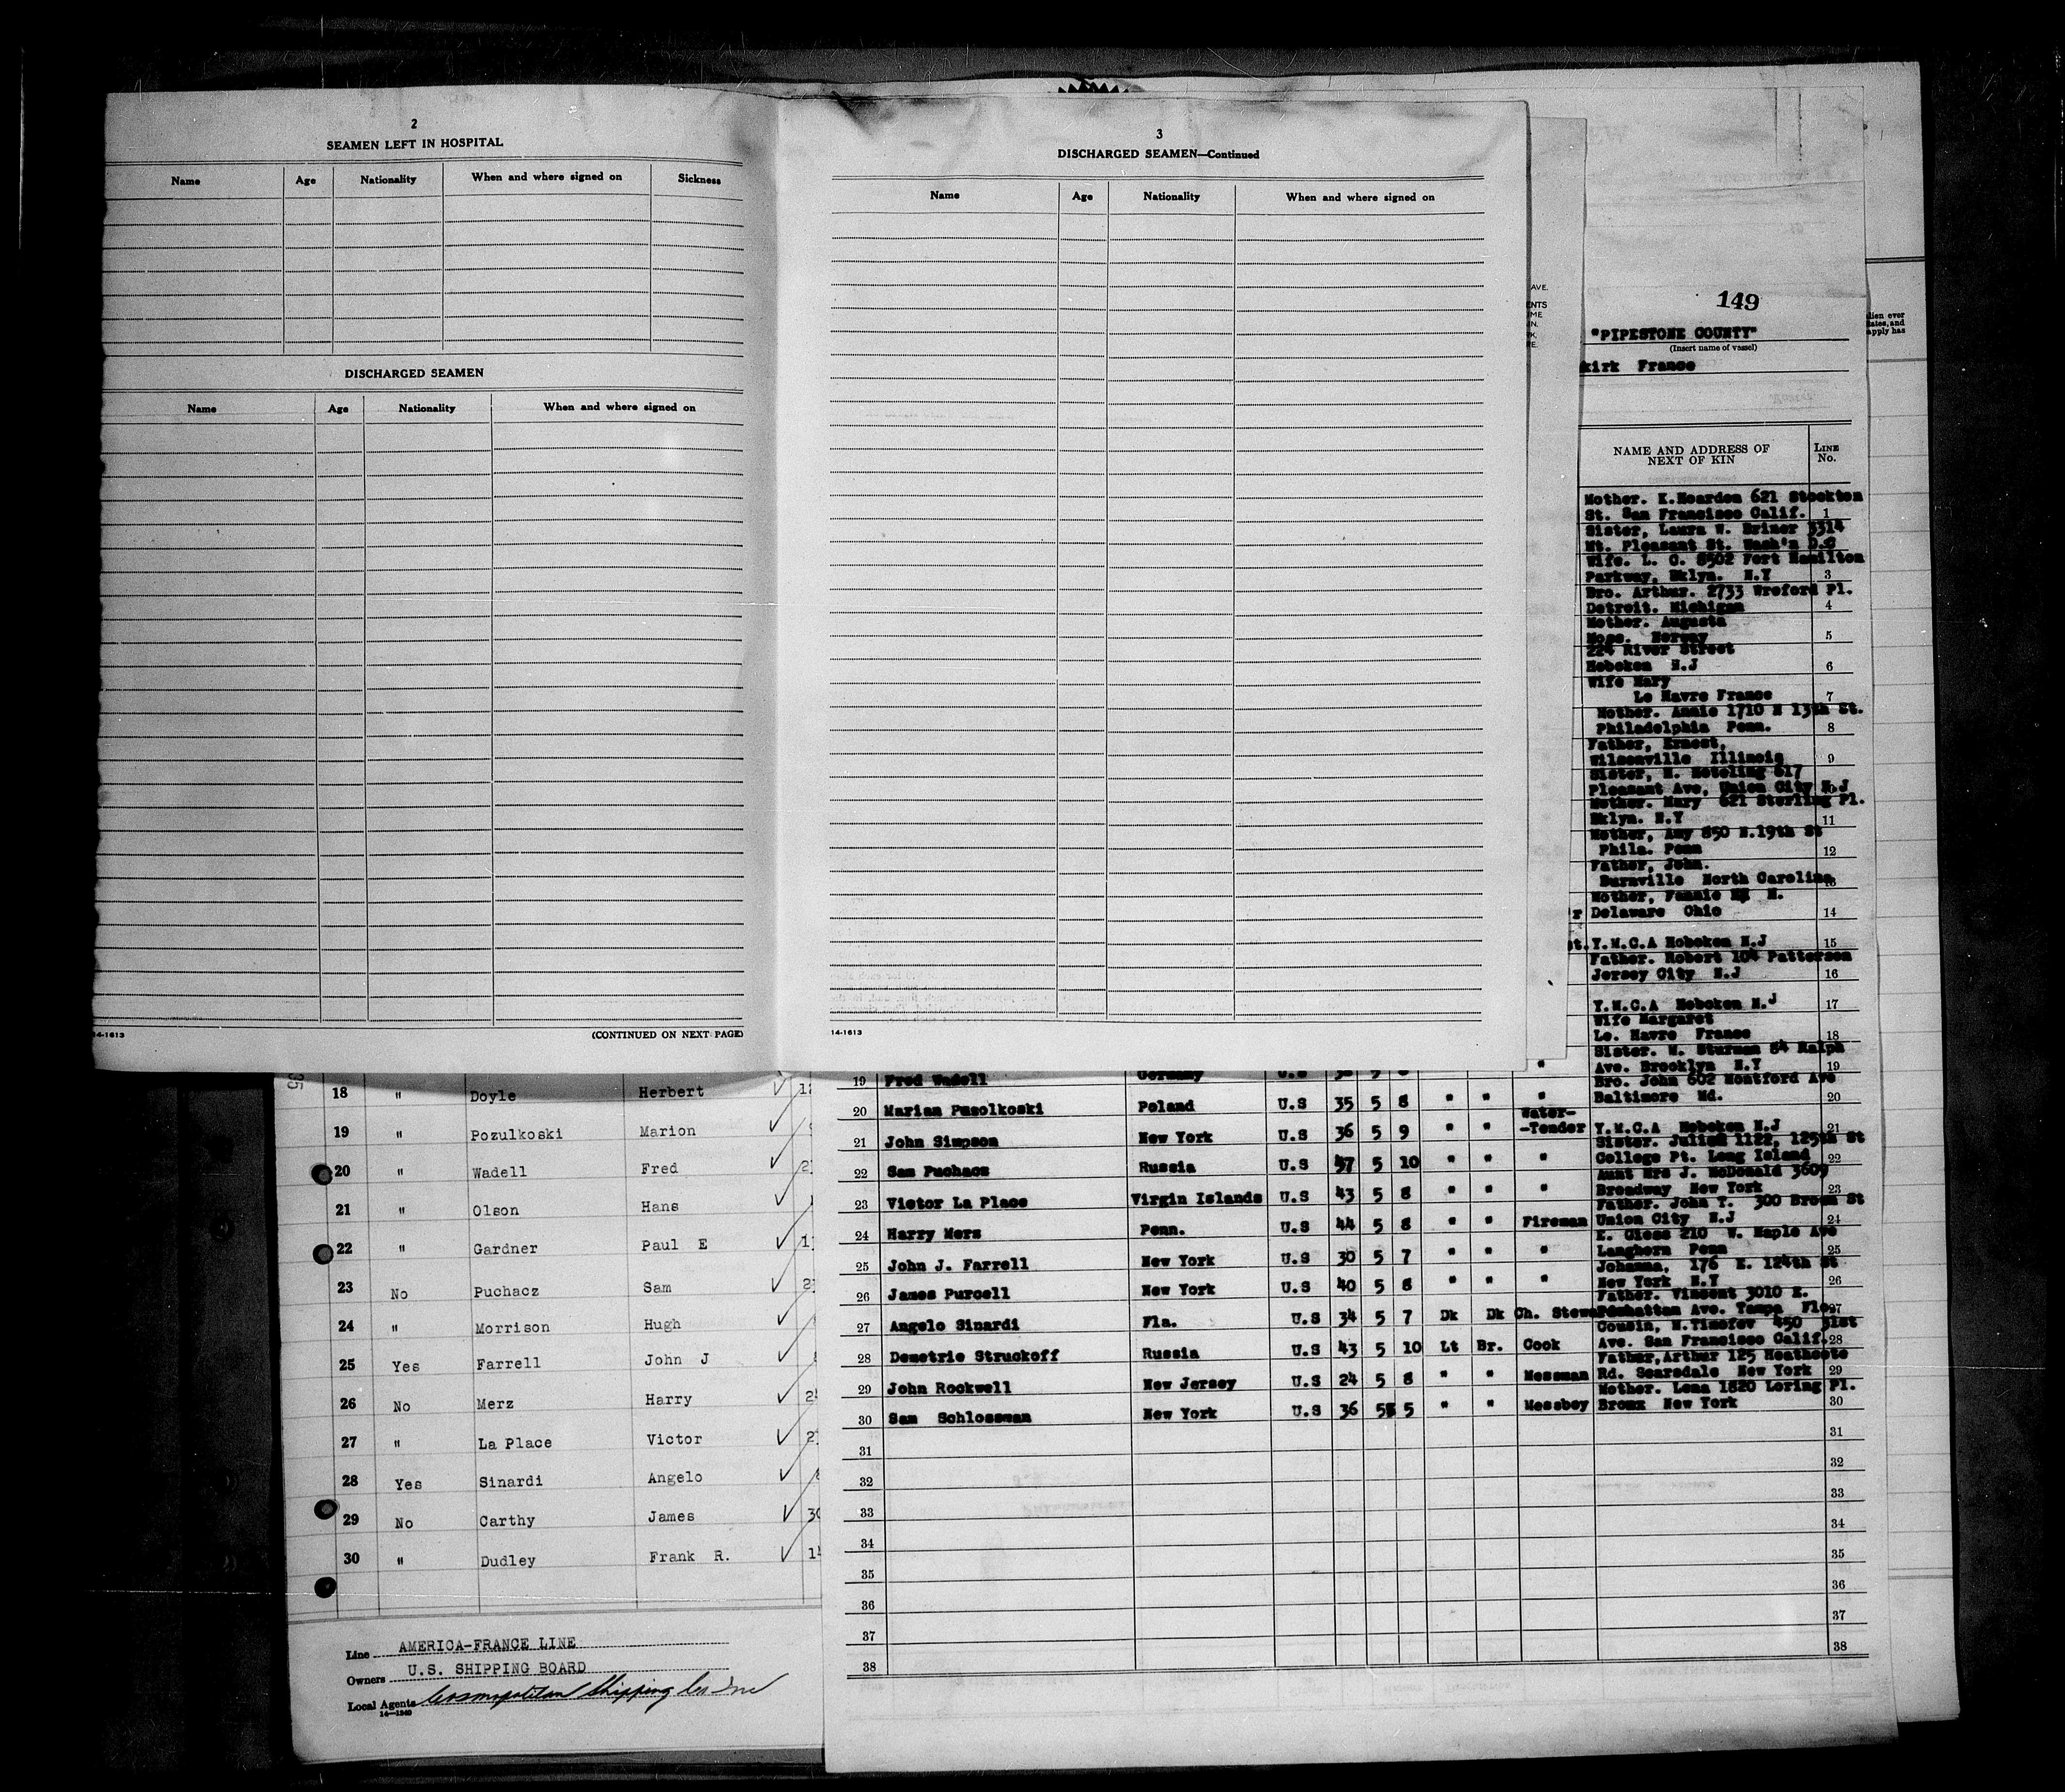 2
SEAMEN LEFT IN HOSPITAL
Name Age Nationality When and where signed on Sickness
DISCHARGED SEAMEN
Name Age Nationality When and where signed on
14-1613 (CONTINUED ON NEXT PAGE)
3
DISCHARGED SEAMEN—Continued
Name Age Nationality When and where signed on
14-1613
AVE.
ENTS
ME
IN.
RK,
RE.
149
"PIPESTONE COUNTY"
(Insert name of vessel)
kirk France
alien ever
States, and
apply has
NAME AND ADDRESS OF NEXT OF KIN
LINE No.
Mother. K.Hearden 621 Stockton
St. San Francisco Calif. 1
Sister, Laura W. Briner 3314
Mt. Pleasant St. Wash'n D.C
Wife. L. C. 8502 Fort Hamilton
Parkway, Bklyn. N.Y 3
Bro. Arthur. 2733 Wreford Pl.
Detroit. Michigan 4
Mother. Augusta
Moss. Norway 5
224 River Street
Hoboken N.J 6
Wife Mary
Le Havre France 7
Mother. Annie 1710 N 13th St.
Philadelphia Penn. 8
Father, Ernest,
Wilsonville Illinois 9
Sister, M. Hoteling 617
Pleasant Ave, Union City N.J
Mother. Mary 621 Sterling Pl.
Bklyn. N.Y 11
Mother, Amy 850 N.19th St
Phila. Penn 12
Father, John.
Burnville North Carolina
Mother, Fannie M.
r Delaware Ohio 14
st. Y.M.C.A Hoboken N.J 15
Father. Robert 104 Patterson
Jersey City N.J 16
Y.M.C.A Hoboken N.J 17
Wife Margaret
Le. Havre France 18
Sister. W. Sturman 84 Ralph
Ave. Brooklyn N.Y 19
Bro. John 602 Montford Ave
Baltimore Md. 20
19 Fred Wadell Germany U.S "
20 Marian Pusolkoski Poland U.S 35 5 8 " " "
21 John Simpson New York U.S 36 5 9 " " Water--Tender Y.M.C.A Hoboken N.J 21
Sister. Julies 1122, 125th St
22 Sam Puchacz Russia U.S 37 5 10 " " " College Pt. Long Island 22
Aunt Mrs J. McDonald 3609
23 Victor La Place Virgin Islands U.S 43 5 8 " " " Broadway New York 23
Father. John T. 300 Brown St
24 Harry Merz Penn. U.S 44 5 8 " " Fireman Union City N.J 24
E. Giese 210 W. Maple Ave
25 John J. Farrell New York U.S 30 5 7 " " " Langhorn Penn 25
Johanna, 176 E. 124th St
26 James Purcell New York U.S 40 5 8 " " " New York N.Y 26
Father. Vincent 3010 E.
27 Angelo Sinardi Fla. U.S 34 5 7 Dk Dk Ch. Stew Manhattan Ave. Tampa Fla. 27
Cousin, N.Timofev 450 31st
28 Demetrie Struckoff Russia U.S 43 5 10 Lt Br. Cook Ave. San Francisco Calif. 28
Father, Arthur 125 Heathcote
29 John Rockwell New Jersey U.S 24 5 8 " " Messman Rd. Scarsdale New York 29
Mother. Lena 1820 Loring Pl.
30 Sam Schlossman New York U.S 36 5 5 " " Messboy Bronx New York 30
31 31
32 32
33 33
34 34
35 35
36 36
37 37
38 38
35
18 " Doyle Herbert
19 " Pozulkoski Marion
20 " Wadell Fred
21 " Olson Hans
22 " Gardner Paul E
23 No Puchacz Sam
24 " Morrison Hugh
25 Yes Farrell John J
26 No Merz Harry
27 " La Place Victor
28 Yes Sinardi Angelo
29 No Carthy James 30
30 " Dudley Frank R.
Line AMERICA-FRANCE LINE
Owners U.S. SHIPPING BOARD
Local Agents Cosmopolitan Shipping Co Inc
14—1240